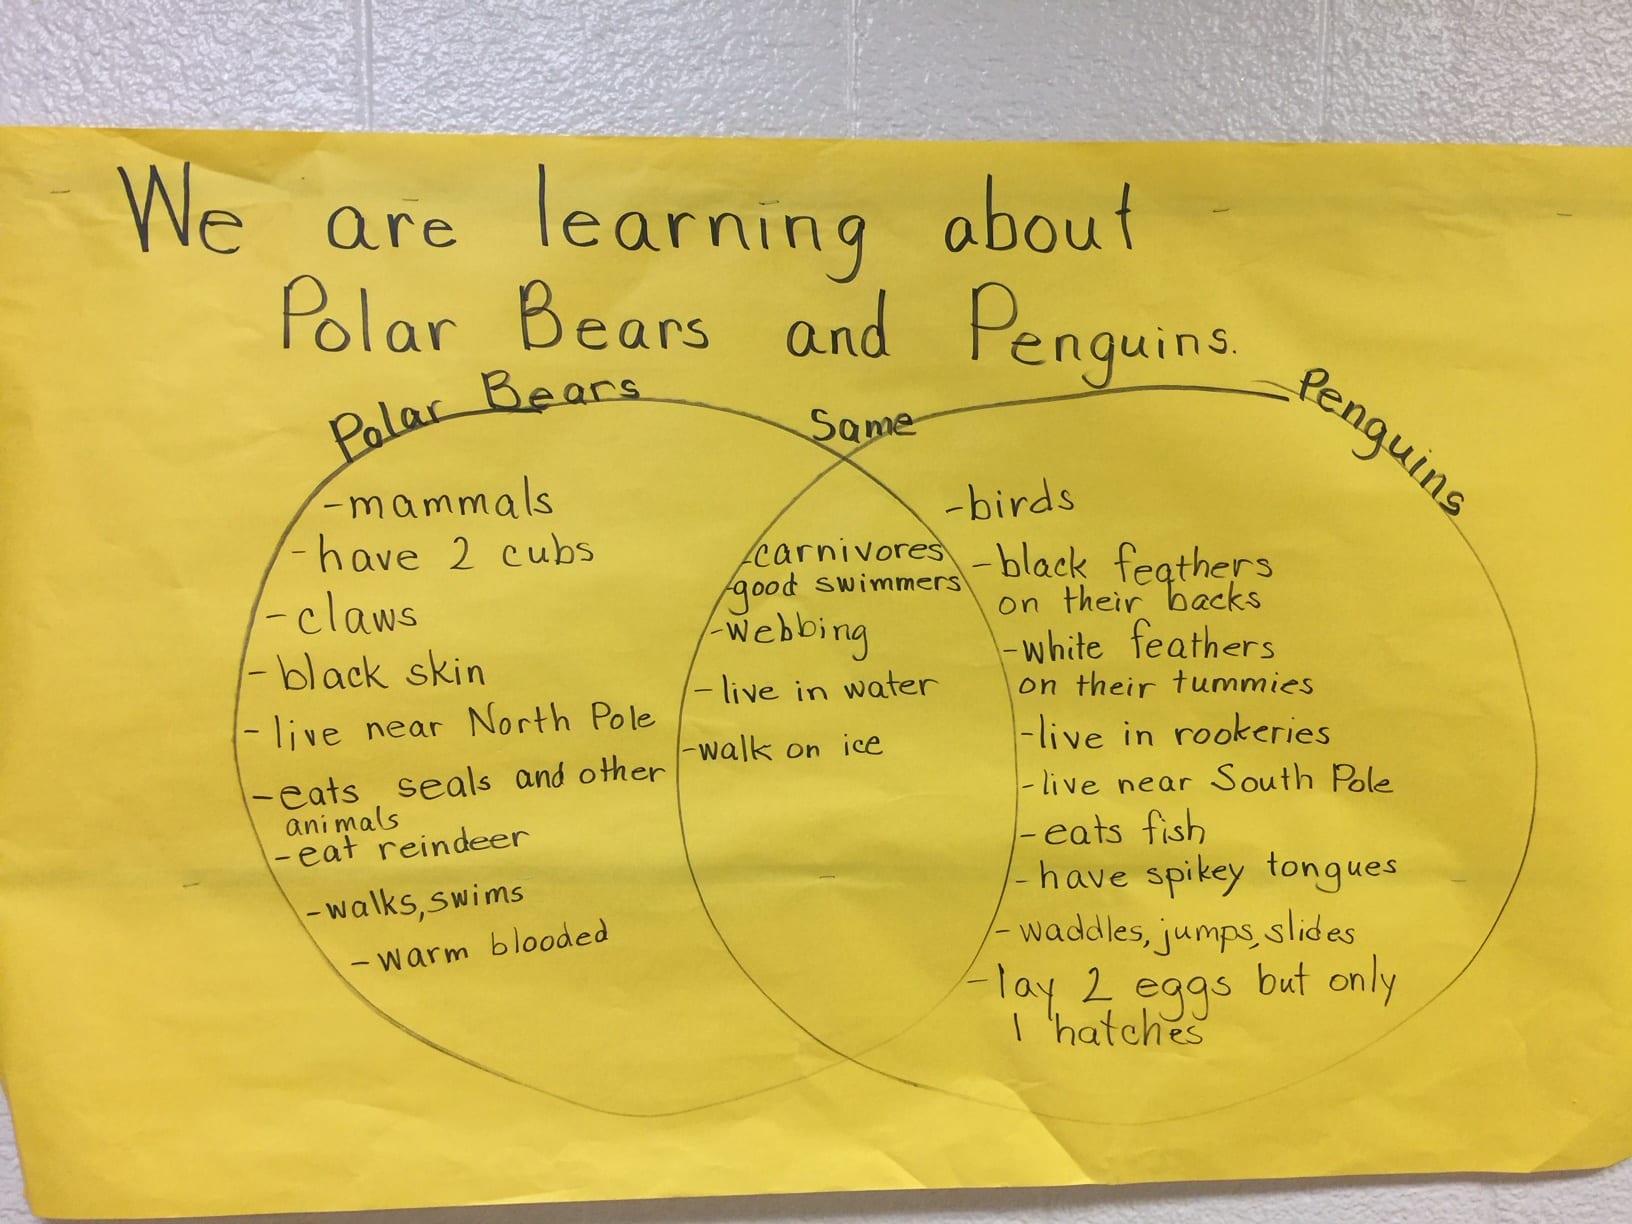 We are learning about
Polar Bears and Penguins.
Polar Bears
-mammals
-have 2 cubs
-claws
-black skin
-live near North Pole
-eats seals and other
animals
-eat reindeer
-walks, swims
-warm blooded
Same
-carnivores
-good swimmers
-webbing
-live in water
-walk on ice
Penguins
-birds
-black feathers
on their backs
-white feathers
on their tummies
-live in rookeries
-live near South Pole
-eats fish
-have spikey tongues
-waddles, jumps, slides
-lay 2 eggs but only
1 hatches